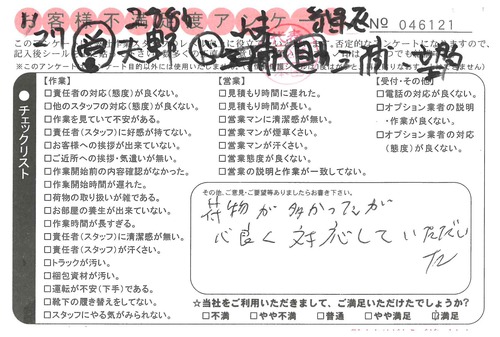 お客様不満足度アンケート
No 046121
【作業】
□責任者の対応(態度)が良くない。
□他のスタッフの対応(態度)が良くない。
□作業を見ていて不安がある。
□責任者(スタッフ)に好感が持てない。
□お客様への挨拶が出来ていない。
□ご近所への挨拶・気遣いが無い。
□作業開始前の内容確認がなかった。
□作業開始時間が遅れた。
□荷物の取り扱いが雑である。
□お部屋の養生が出来ていない。
□作業時間が長すぎる。
□責任者(スタッフ)に清潔感が無い。
□責任者(スタッフ)が汗くさい。
□トラックが汚い。
□梱包資材が汚い。
□運転が不安(下手)である。
□靴下の履き替えをしてない。
□スタッフにやる気がみられない。
チェックリスト
【営業】
□見積もり時間に遅れた。
□見積もり時間が長い。
□営業マンに清潔感が無い。
□営業マンが煙草くさい。
□営業マンが汗くさい。
□営業態度が良くない。
□営業の説明と作業が一致してない。
【受付・その他】
□電話の対応が良くない。
□オプション業者の説明
・作業が良くない。
□オプション業者の対応
(態度)が良くない。
その他、ご意見・ご要望等ありましたらお書き下さい。
荷物が多かったが
心良く対応していただい
た
☆当社をご利用いただきまして、ご満足いただけたでしょうか?
□不満 □やや不満 □普通 □やや満足 ☑満足